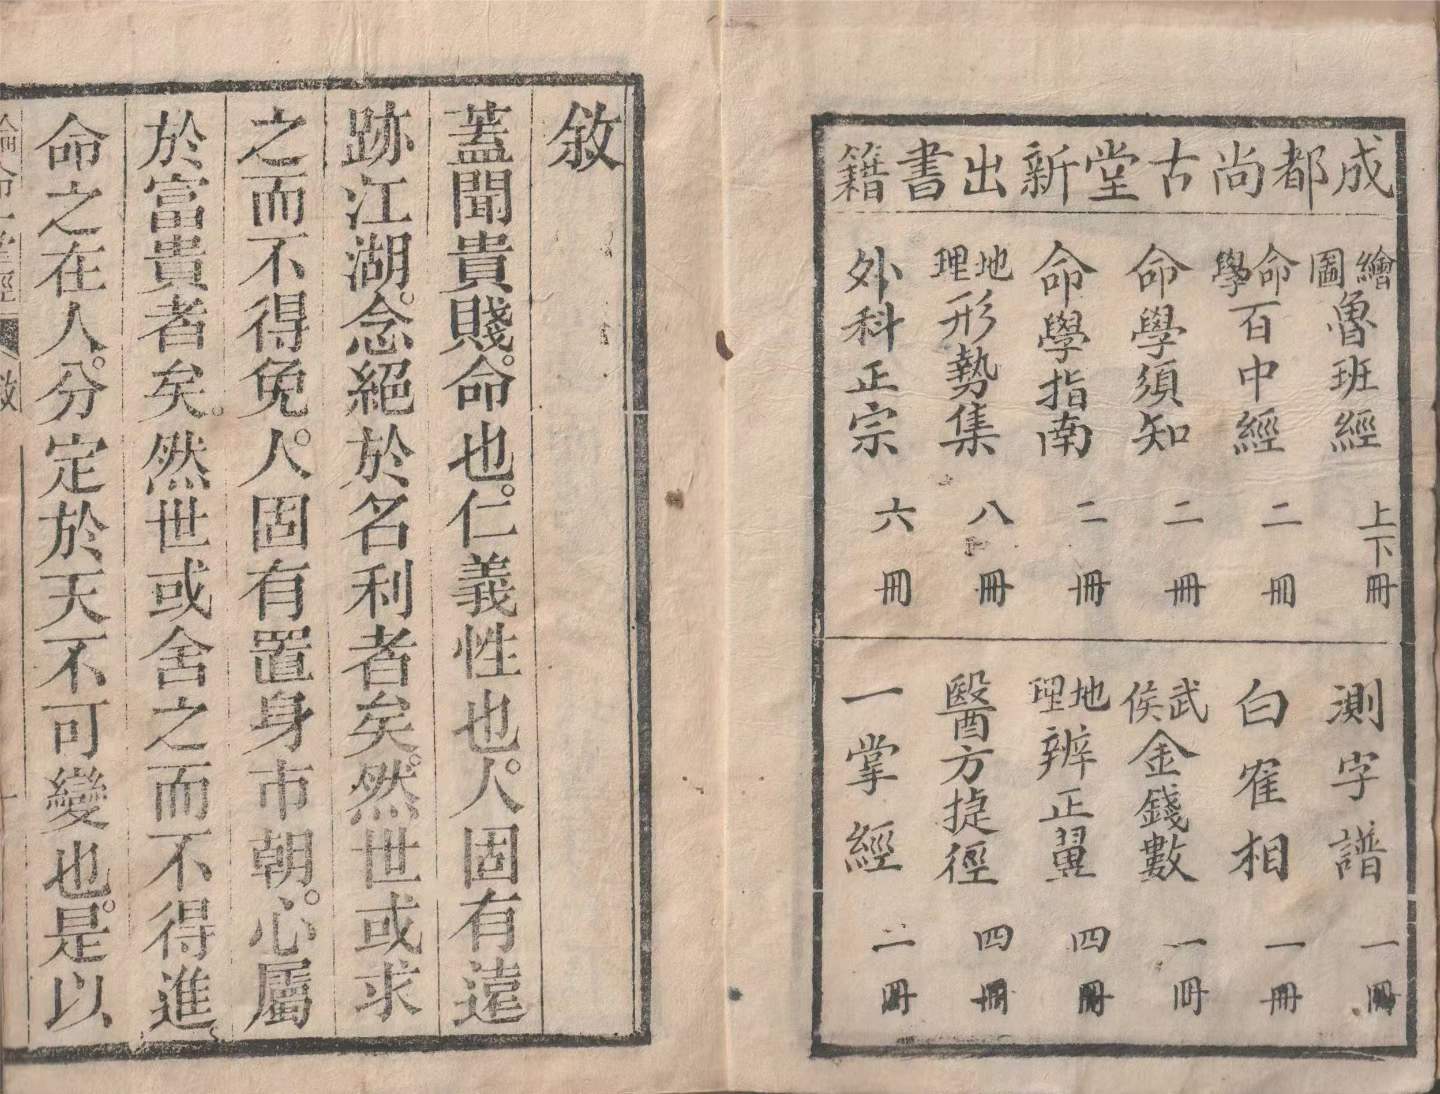 成都尚古堂新出書籍
繪圖魯班經 上下冊
命學百中經 二冊
命學須知 二冊
命學指南 二冊
地理形勢集 八冊
外科正宗 六冊
測字譜 一冊
白隺相 一冊
武侯金錢數 一冊
地理辨正翼 四冊
醫方捷徑 四冊
一掌經 二冊
敘
蓋聞貴賤。命也。仁義性也。人固有遠
跡江湖。念絕於名利者矣。然世或求
之而不得免。人固有置身市朝。心屬
於富貴者矣。然世或舍之而不得進。
命之在人。分定於天不可變也。是以
掌經 敘 一